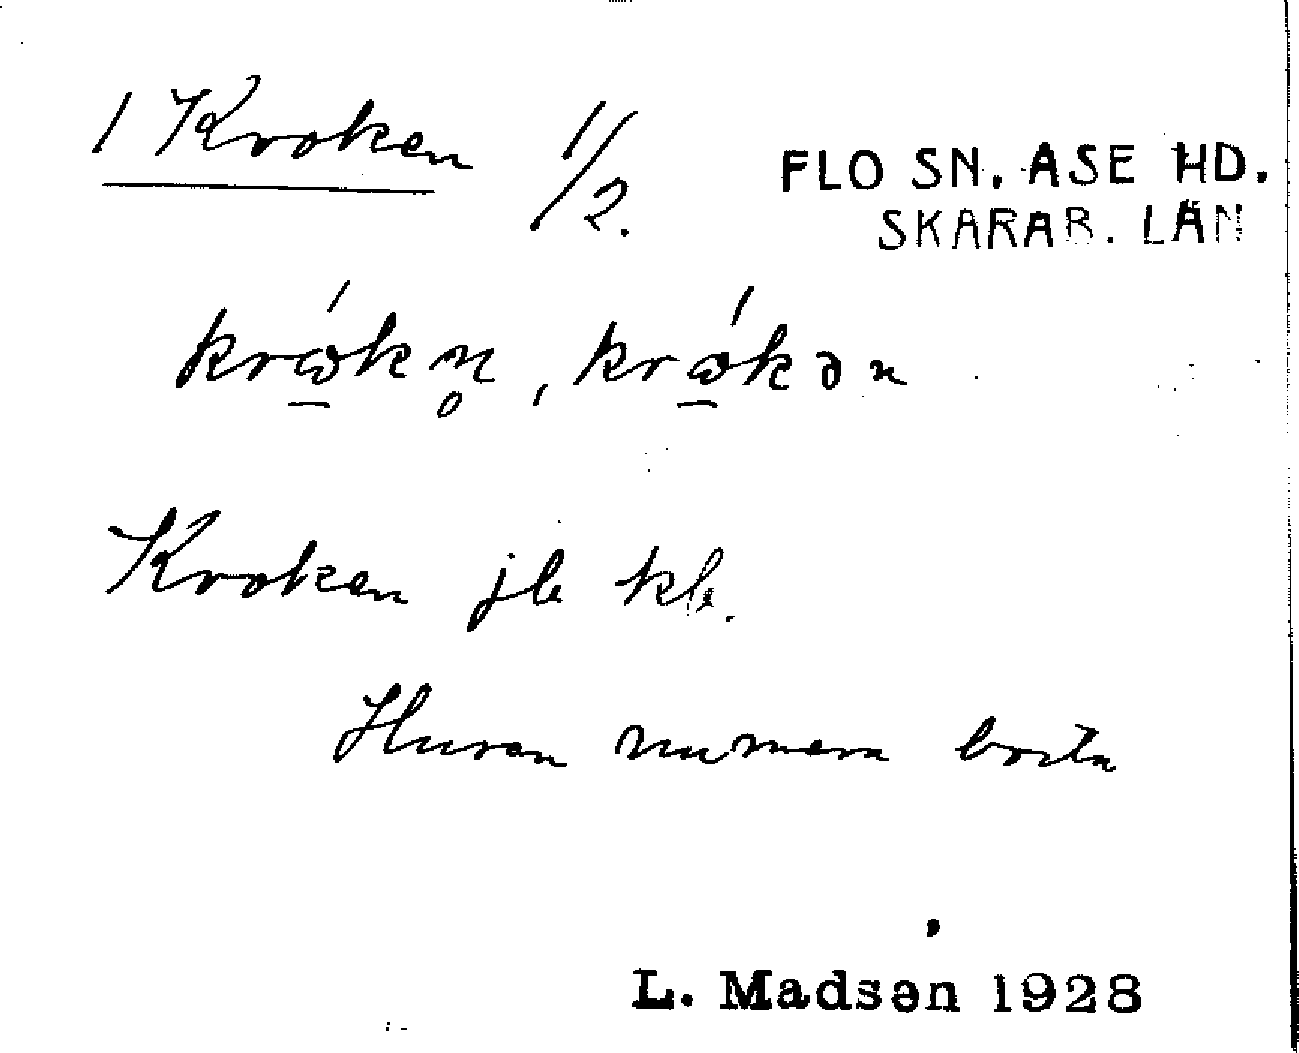 1 Kroken 1/2. FLO SN. ASE HD.
SKARAB. LÄN
krώkn̥, krώkən
Kroken jb kb.
Husen numera borta
L. Madsen 1928